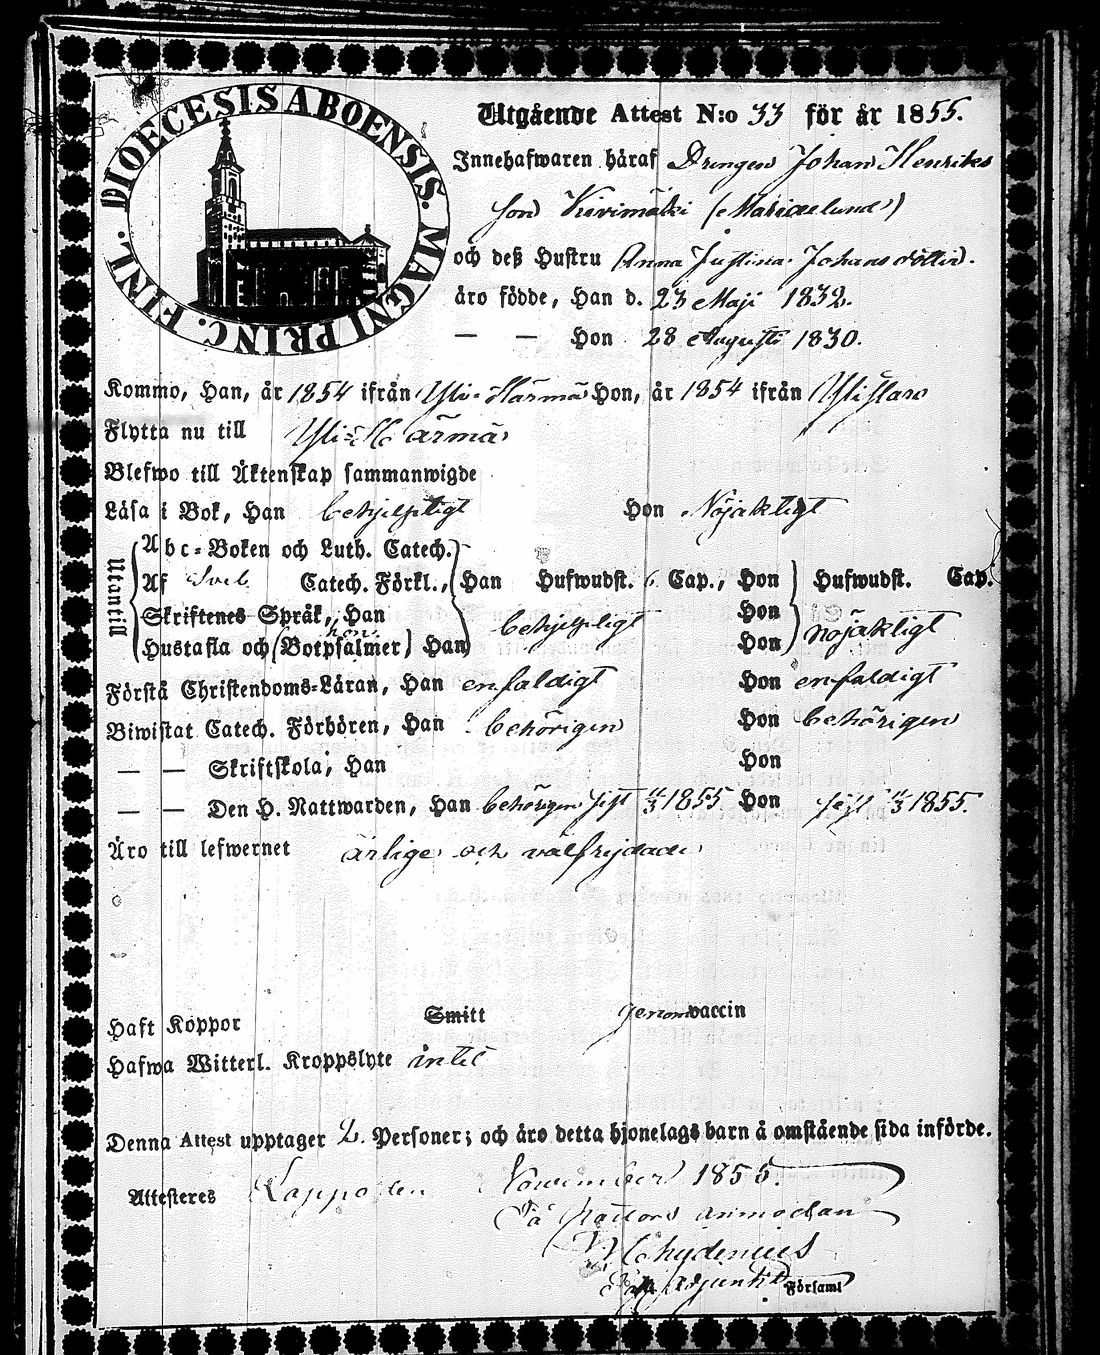 DIOECESIS ABOENSIS. MAGNI PRINC. FINL.
Utgående Attest N:o 33 för år 1855.
Innehafwaren häraf Drengen Johan Henriks
son Kivimäki (Mariaelund)
och deß Hustru Anna Justina Johansdotter.
äro födde, Han d. 23 Maji 1832.
— — Hon 28 Augusti 1830.
Kommo, Han, år 1854 ifrån Yli-Härmä Hon, år 1854 ifrån Ylistaro
Flytta nu till Yli-Härmä
Blefwo till Äktenskap sammanwigde
Läsa i Bok, Han behjelpligt Hon Nöjaktigt
Utantill
Abc-Boken och Luth. Catech.
Af Sveb. Catech. Förkl., Han Hufwudst. 6 Cap., Hon Hufwudst. Cap.
Skriftenes Språk, Han behjelpligt Hon nöjaktigt
Hustafla och (Botpsalmer) Han Hon
hon
Förstå Christendoms-Läran, Han enfaldigt Hon enfaldigt
Biwistat Catech. Förhören, Han behörigen Hon behörigen
— — Skriftskola, Han Hon
— — Den H. Nattwarden, Han behörigen sist 1855 Hon sist 1855.
Äro till lefwernet ärlige och välfrejdade
Haft Koppor Smitt genom vaccin
Hafwa Witterl. Kroppslyte intet
Denna Attest upptager 2. Personer; och äro detta hjonelags barn å omstående sida införde.
Attesteres Lappo den November 1855.
På Pastors anmodan
Chydenius
Adjunkt Församl